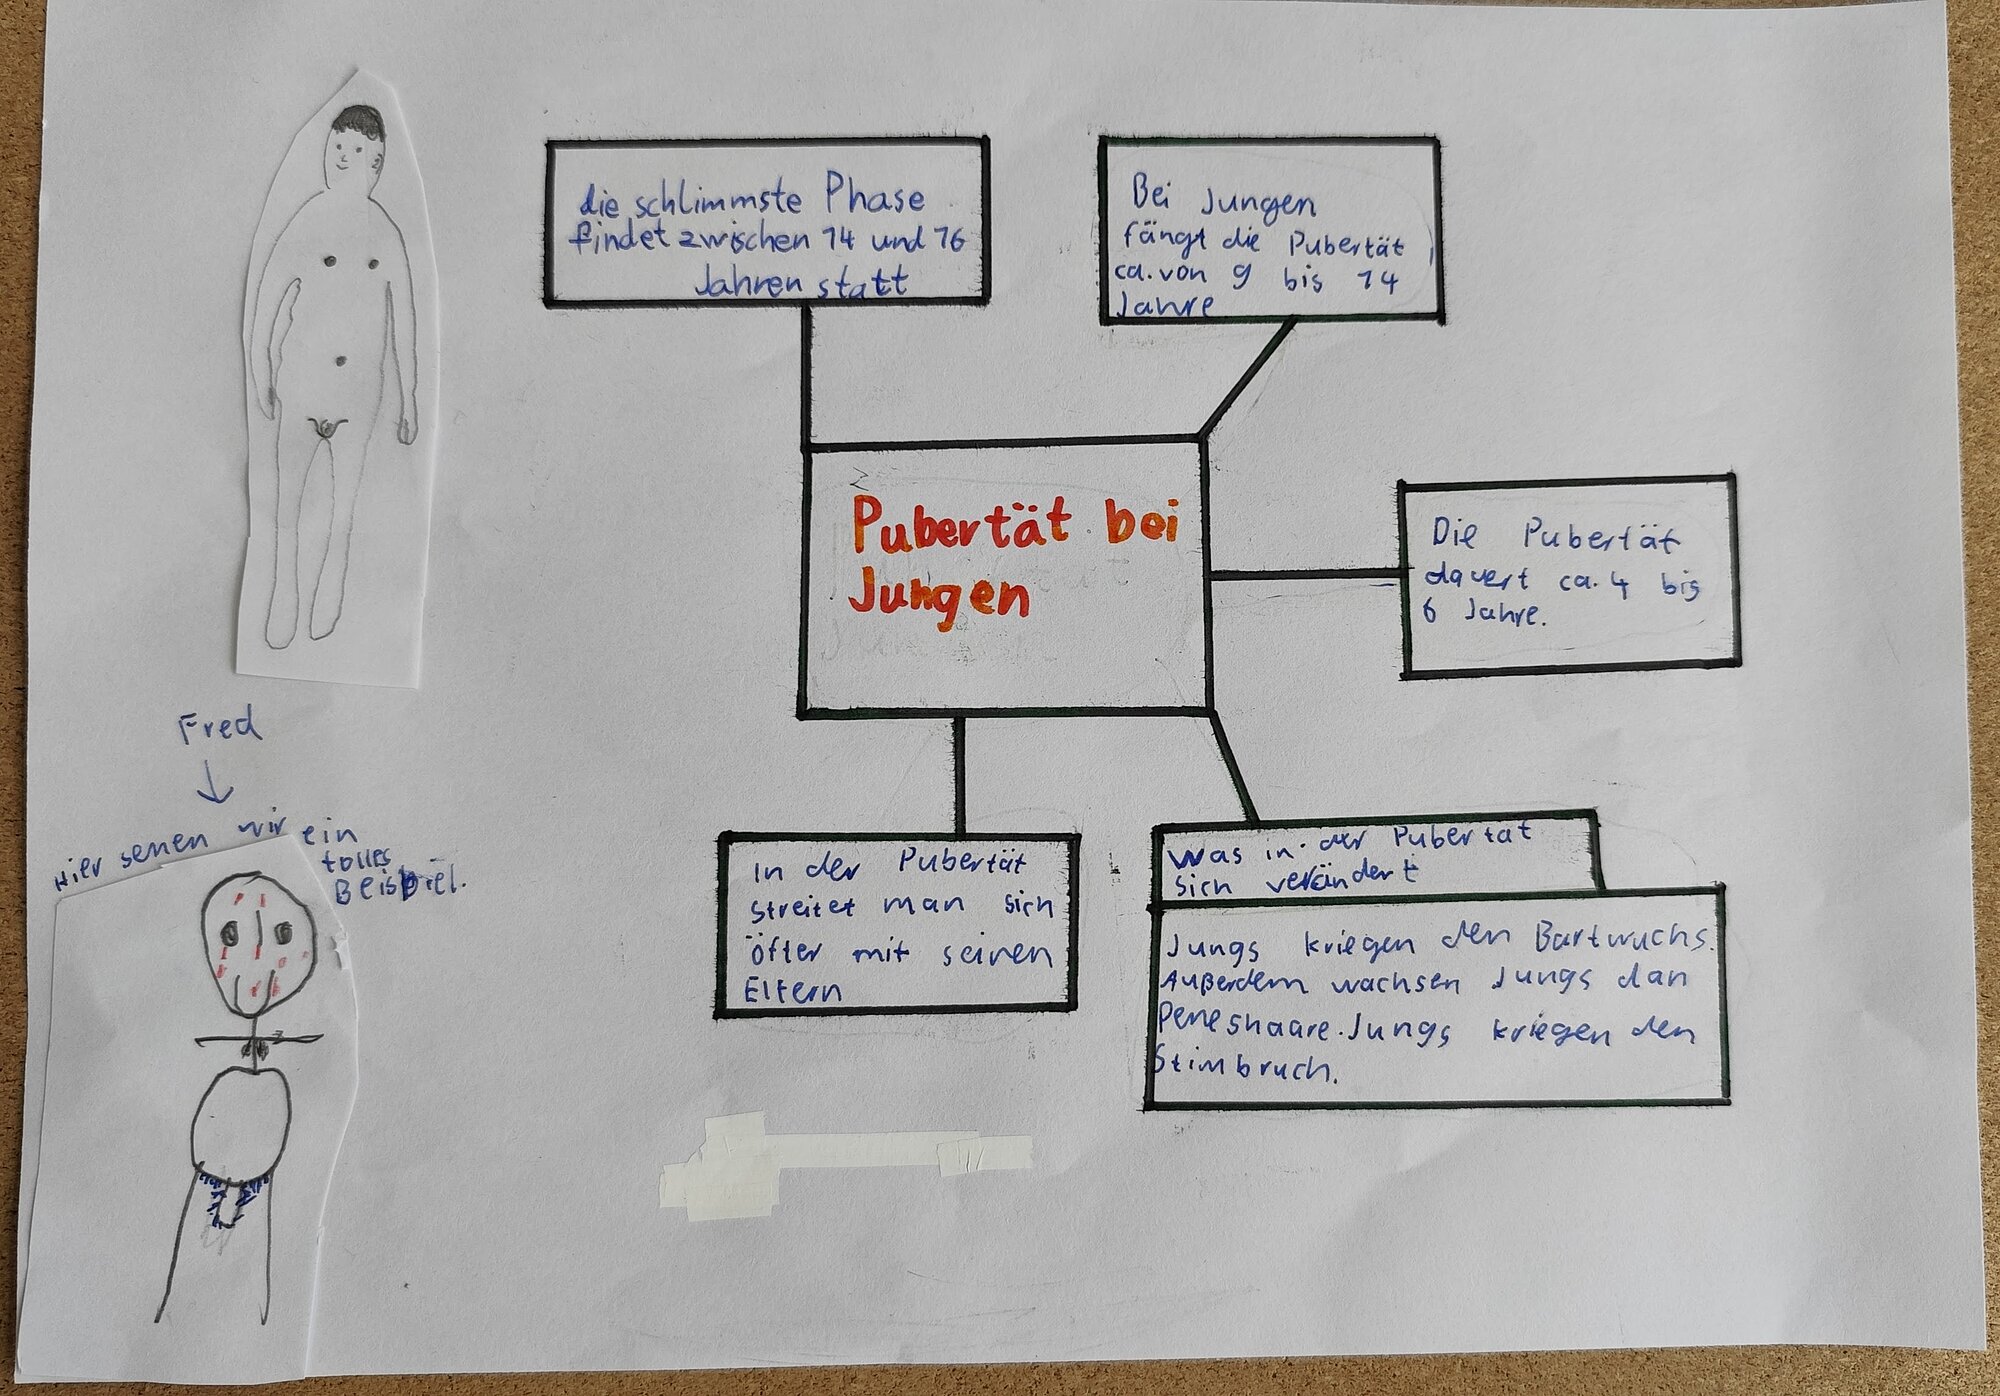 die schlimmste Phase
findet zwischen 14 und 16
Jahren statt
Bei Jungen
fängt die Pubertät
ca. von 9 bis 14
Jahre
Pubertät bei
Jungen
Die Pubertät
dauert ca. 4 bis
6 Jahre.
Fred
Hier sehen wir ein
tolles
Beispiel.
In der Pubertät
streitet man sich
öfter mit seinen
Eltern
Was in der Pubertat
sich verändert
Jungs kriegen den Bartwuchs.
Außerdem wachsen Jungs dan
Peneshaare. Jungs kriegen den
Stimbruch.